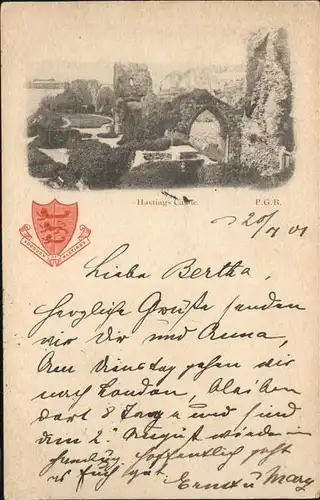 Hastings Castle.
P.G.R.
BOROUGH OF HASTINGS
20/7 01
Liebe Bertha,
Herzliche Grüße senden
wir Dir und Anna,
Am Dienstag gehen wir
nach London, bleiben
dort 8 Tage und sind
den 2. August wieder in
Hamburg hoffentlich geht
es Euch gut. Ernst u Mary